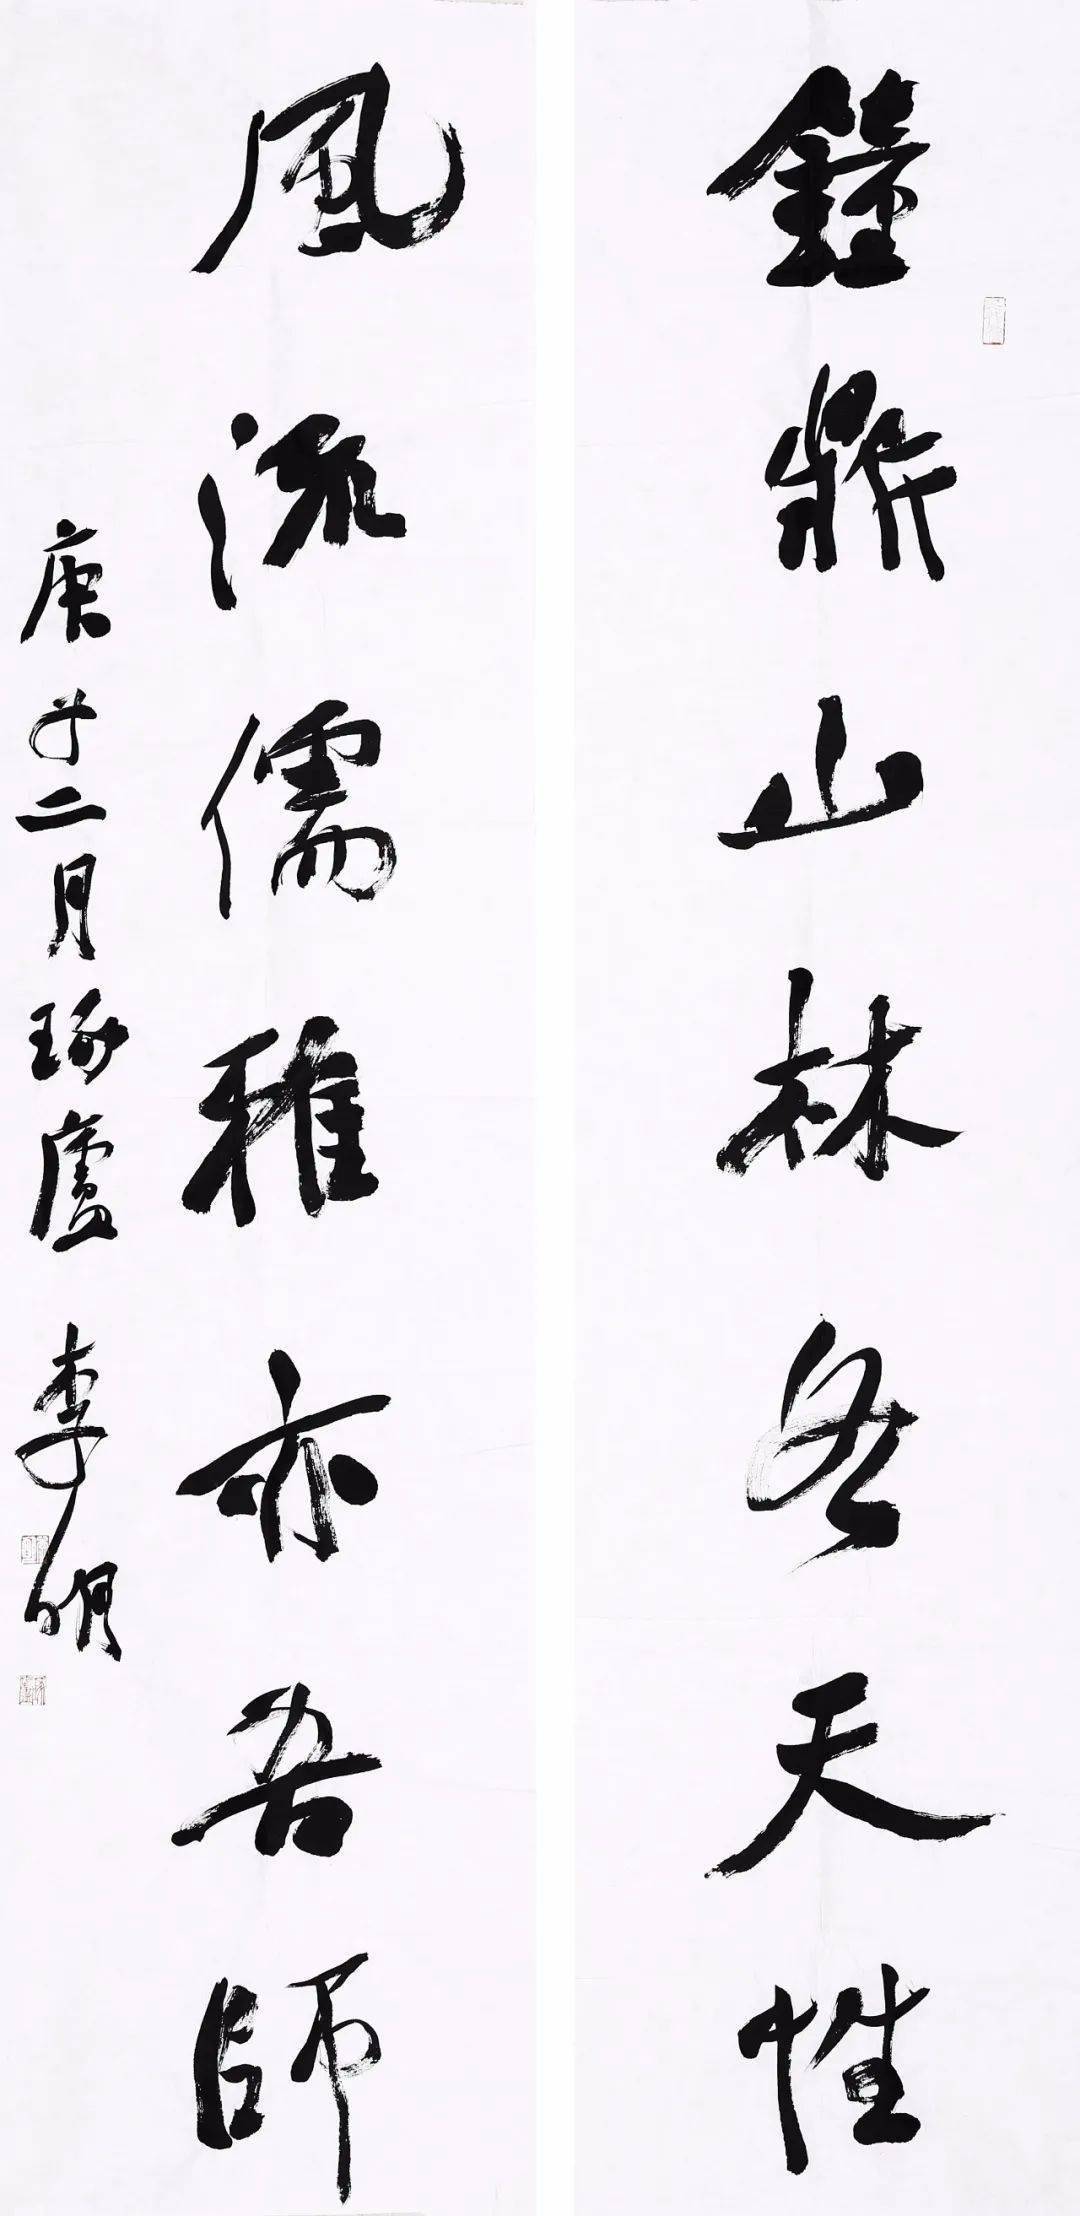 鐘鼎山林各天性
風流儒雅亦吾師
庚子二月琢廬李明